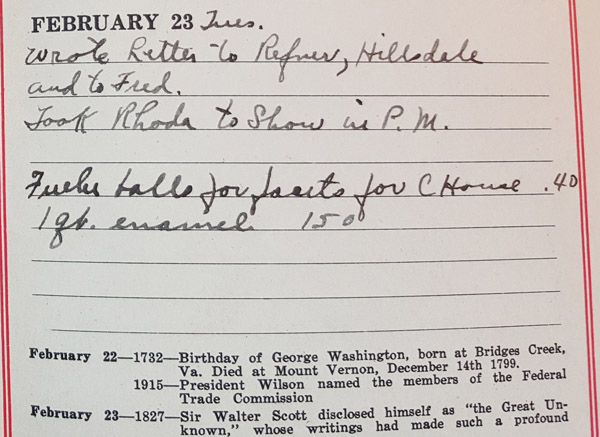 FEBRUARY 23 Tues.
Wrote Letter to Refner, Hillsdale
and to Fred.
Took Rhoda to Show in P. M.
Fuller balls for facets for C House .40
1 qt. enamel. 150
February 22—1732—Birthday of George Washington, born at Bridges Creek,
Va. Died at Mount Vernon, December 14th 1799.
1915—President Wilson named the members of the Federal
Trade Commission
February 23—1827—Sir Walter Scott disclosed himself as "the Great Un-
known," whose writings had made such a profound